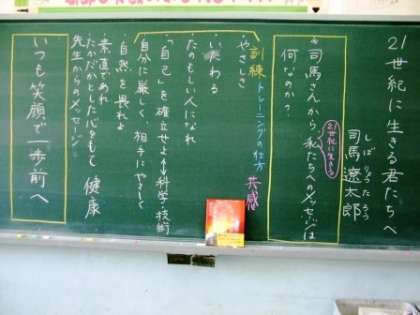 21世紀に生きる君たちへ
しば りょうたろう
司馬遼太郎
＊司馬さんから私たちへのメッセージは
21世紀に生きる
何なのか？
訓練 トレーニングの仕方 共感
・やさしさ
・いたわる
・たのもしい人になれ
・「自己」を確立せよ↔科学・技術
（自分に厳しく、相手にやさしく
・自然を畏れよ
・素直であれ
・たかだかとした心をもて 健康
先生からのメッセージ
いつも笑顔で一歩前へ